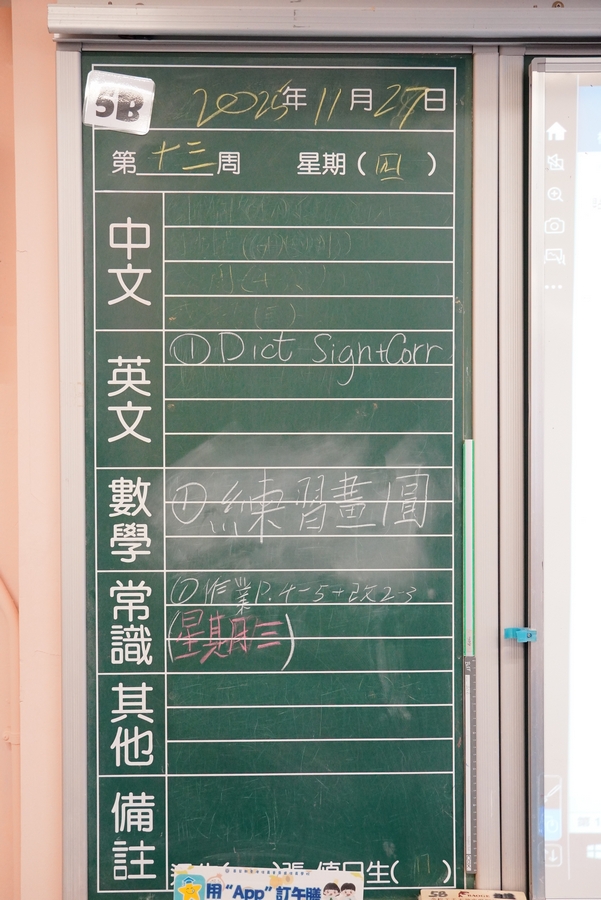 5B
2025年11月27日
第十三周 星期（四）
中文
英文
① Dict Sign+Corr
數學
① 練習畫圓
常識
① 作業P.4-5+改2-3
(星期三)
其他
備註
值日生(
用“App”訂午膳
5B